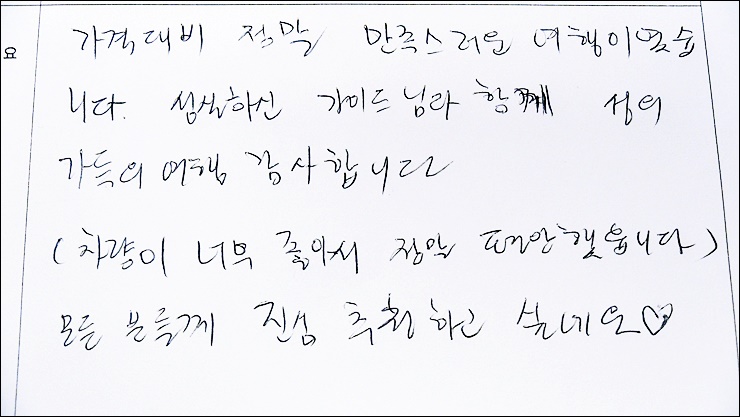 요
가격대비 정말 만족스러운 여행이었습
니다. 성실하신 가이드님과 함께 성의
가득의 여행 감사합니다
(차량이 너무 좋아서 정말 편안했습니다)
모든 분들께 진심 추천하고 싶네요♡